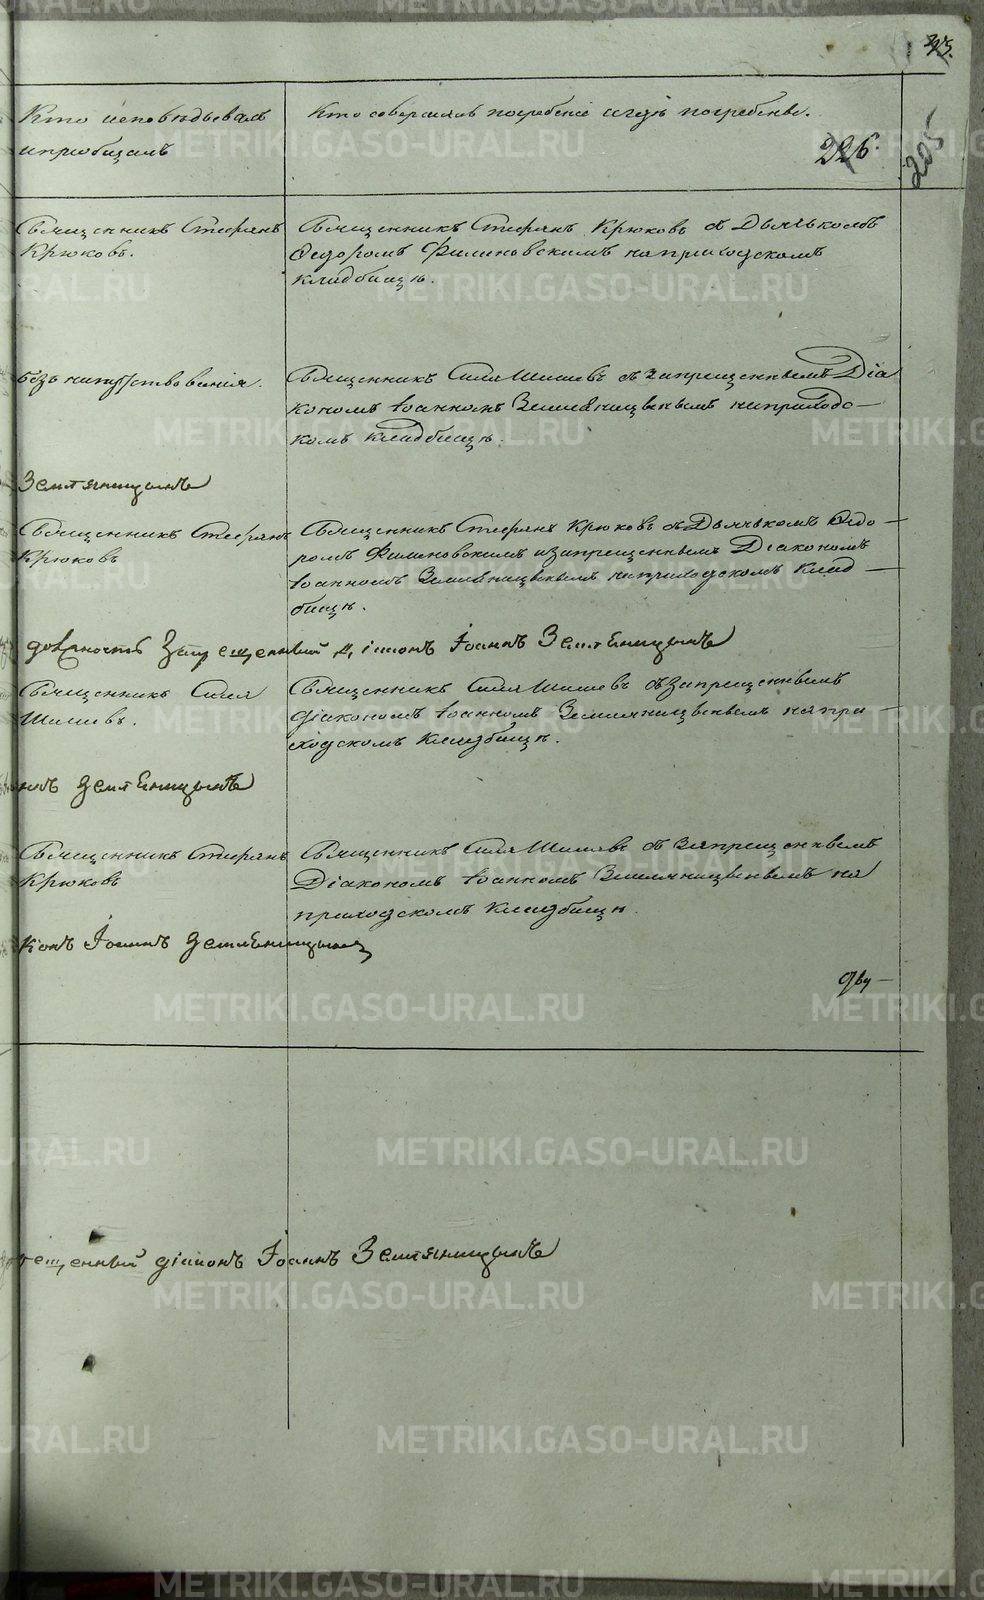 Кто исповѣдывалъ
и пріобщалъ
Кто совершалъ погребеніе и гдѣ погребены.
226.
205
Священникъ Стефанъ
Крюковъ.
Священникъ Стефанъ Крюковъ съ Дьячькомъ
Ѳедоромъ Филиновскимъ на приходскомъ
кладбищѣ.
безъ напутствованія.
Священникъ Сила Шишевъ съ запрещеннымъ Діа
кономъ Іоанномъ Земляницынымъ на приходс-
комъ кладбищѣ.
Земляницынъ
Священникъ Стефанъ
Крюковъ
Священникъ Стефанъ Крюковъ съ Дьячькомъ Ѳедо-
ромъ Филиновскимъ и запрещеннымъ Діакономъ
Іоанномъ Земляницынымъ на приходскомъ клад-
бищѣ.
должность Запрещенный Діаконъ Іоаннъ Земляницынъ
Священникъ Сила
Шишевъ.
Священникъ Сила Шишевъ съ запрещеннымъ
діакономъ Іоанномъ Земляницынымъ на при-
ходскомъ кладбищѣ.
нъ Земляницынъ
Священникъ Стефанъ
Крюковъ
Священникъ Сила Шишевъ съ Запрещеннымъ
Діакономъ Іоанномъ Земляницынымъ на
приходскомъ кладбищѣ.
конъ Іоаннъ Земляницынъ
дву-
рещенный діаконъ Іоаннъ Земляницынъ
METRIKI.GASO-URAL.RU